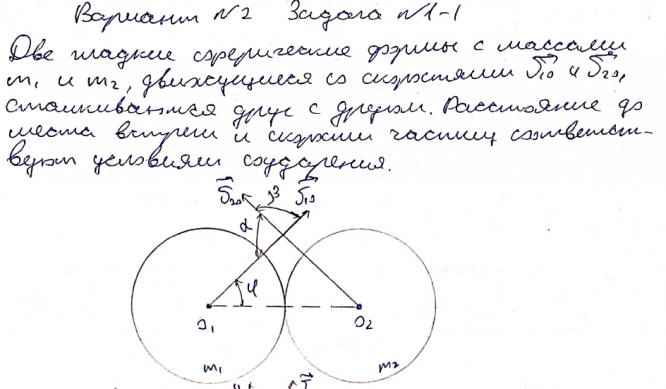 Вариант №2 Задача №1-1
Две гладкие сферические формы с массами
m₁ и m₂, движущиеся со скоростями υ⃗₁₀ и υ⃗₂₀,
сталкиваются друг с другом. Расстояние до
места встречи и скорости частиц соответст-
вуют условиям соударения.
υ⃗₂₀ β υ⃗₁₀
α
φ
O₁ O₂
m₁ m₂